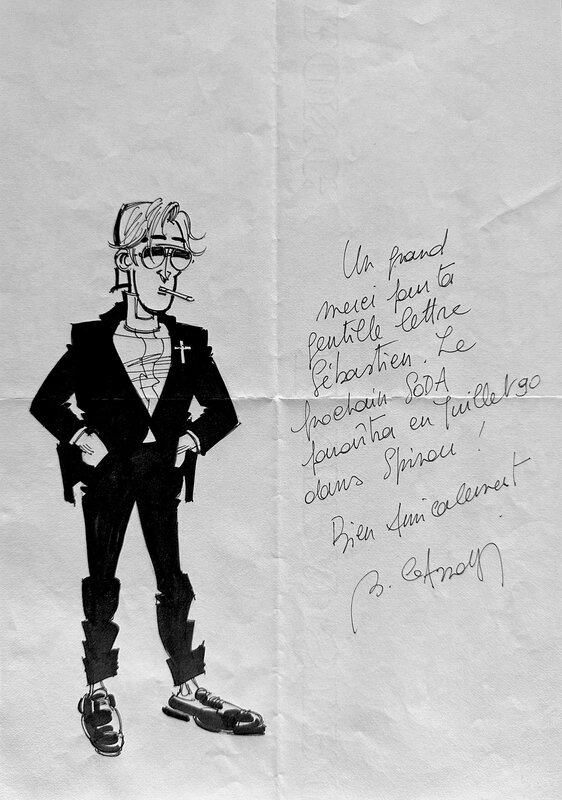 Un grand
merci pour ta
gentille lettre
Sébastien. Le
prochain SODA
paraîtra en Juillet 90
dans Spirou !
Bien Amicalement